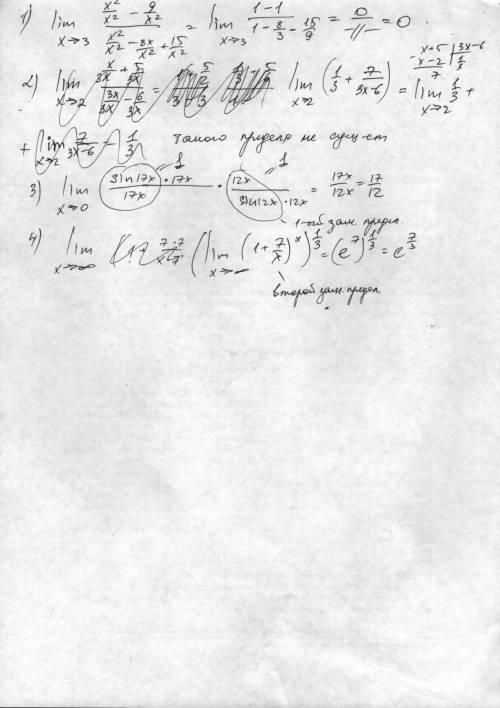 1) lim x→3 (x²/x² - 9/x²)/(x²/x² - 8x/x² + 15/x²) = lim x→3 (1-1)/(1 - 8/3 - 15/9) = 0/-//- = 0.
2) lim x→2 (x/3x + 5/3x)/(3x/3x - 6/3x) = lim x→2 (1/3 + 7/(3x-6)) = lim x→2 1/3 + x+5 | 3x-6 x-2 | 1/3 7
+ lim x→2 7/(3x-6) - 1/3 такого предела не сущ-ет
3) lim x→0 (sin17x · 17x)/17x · 12x/(sin12x · 12x) = 17x/12x = 17/12 1 1
1-ый зам. предел.
4) lim x→∞ (lim x→∞ (1 + 7/x)^x)^(1/3) = (e^7)^(1/3) = e^(7/3)
второй зам. предел.